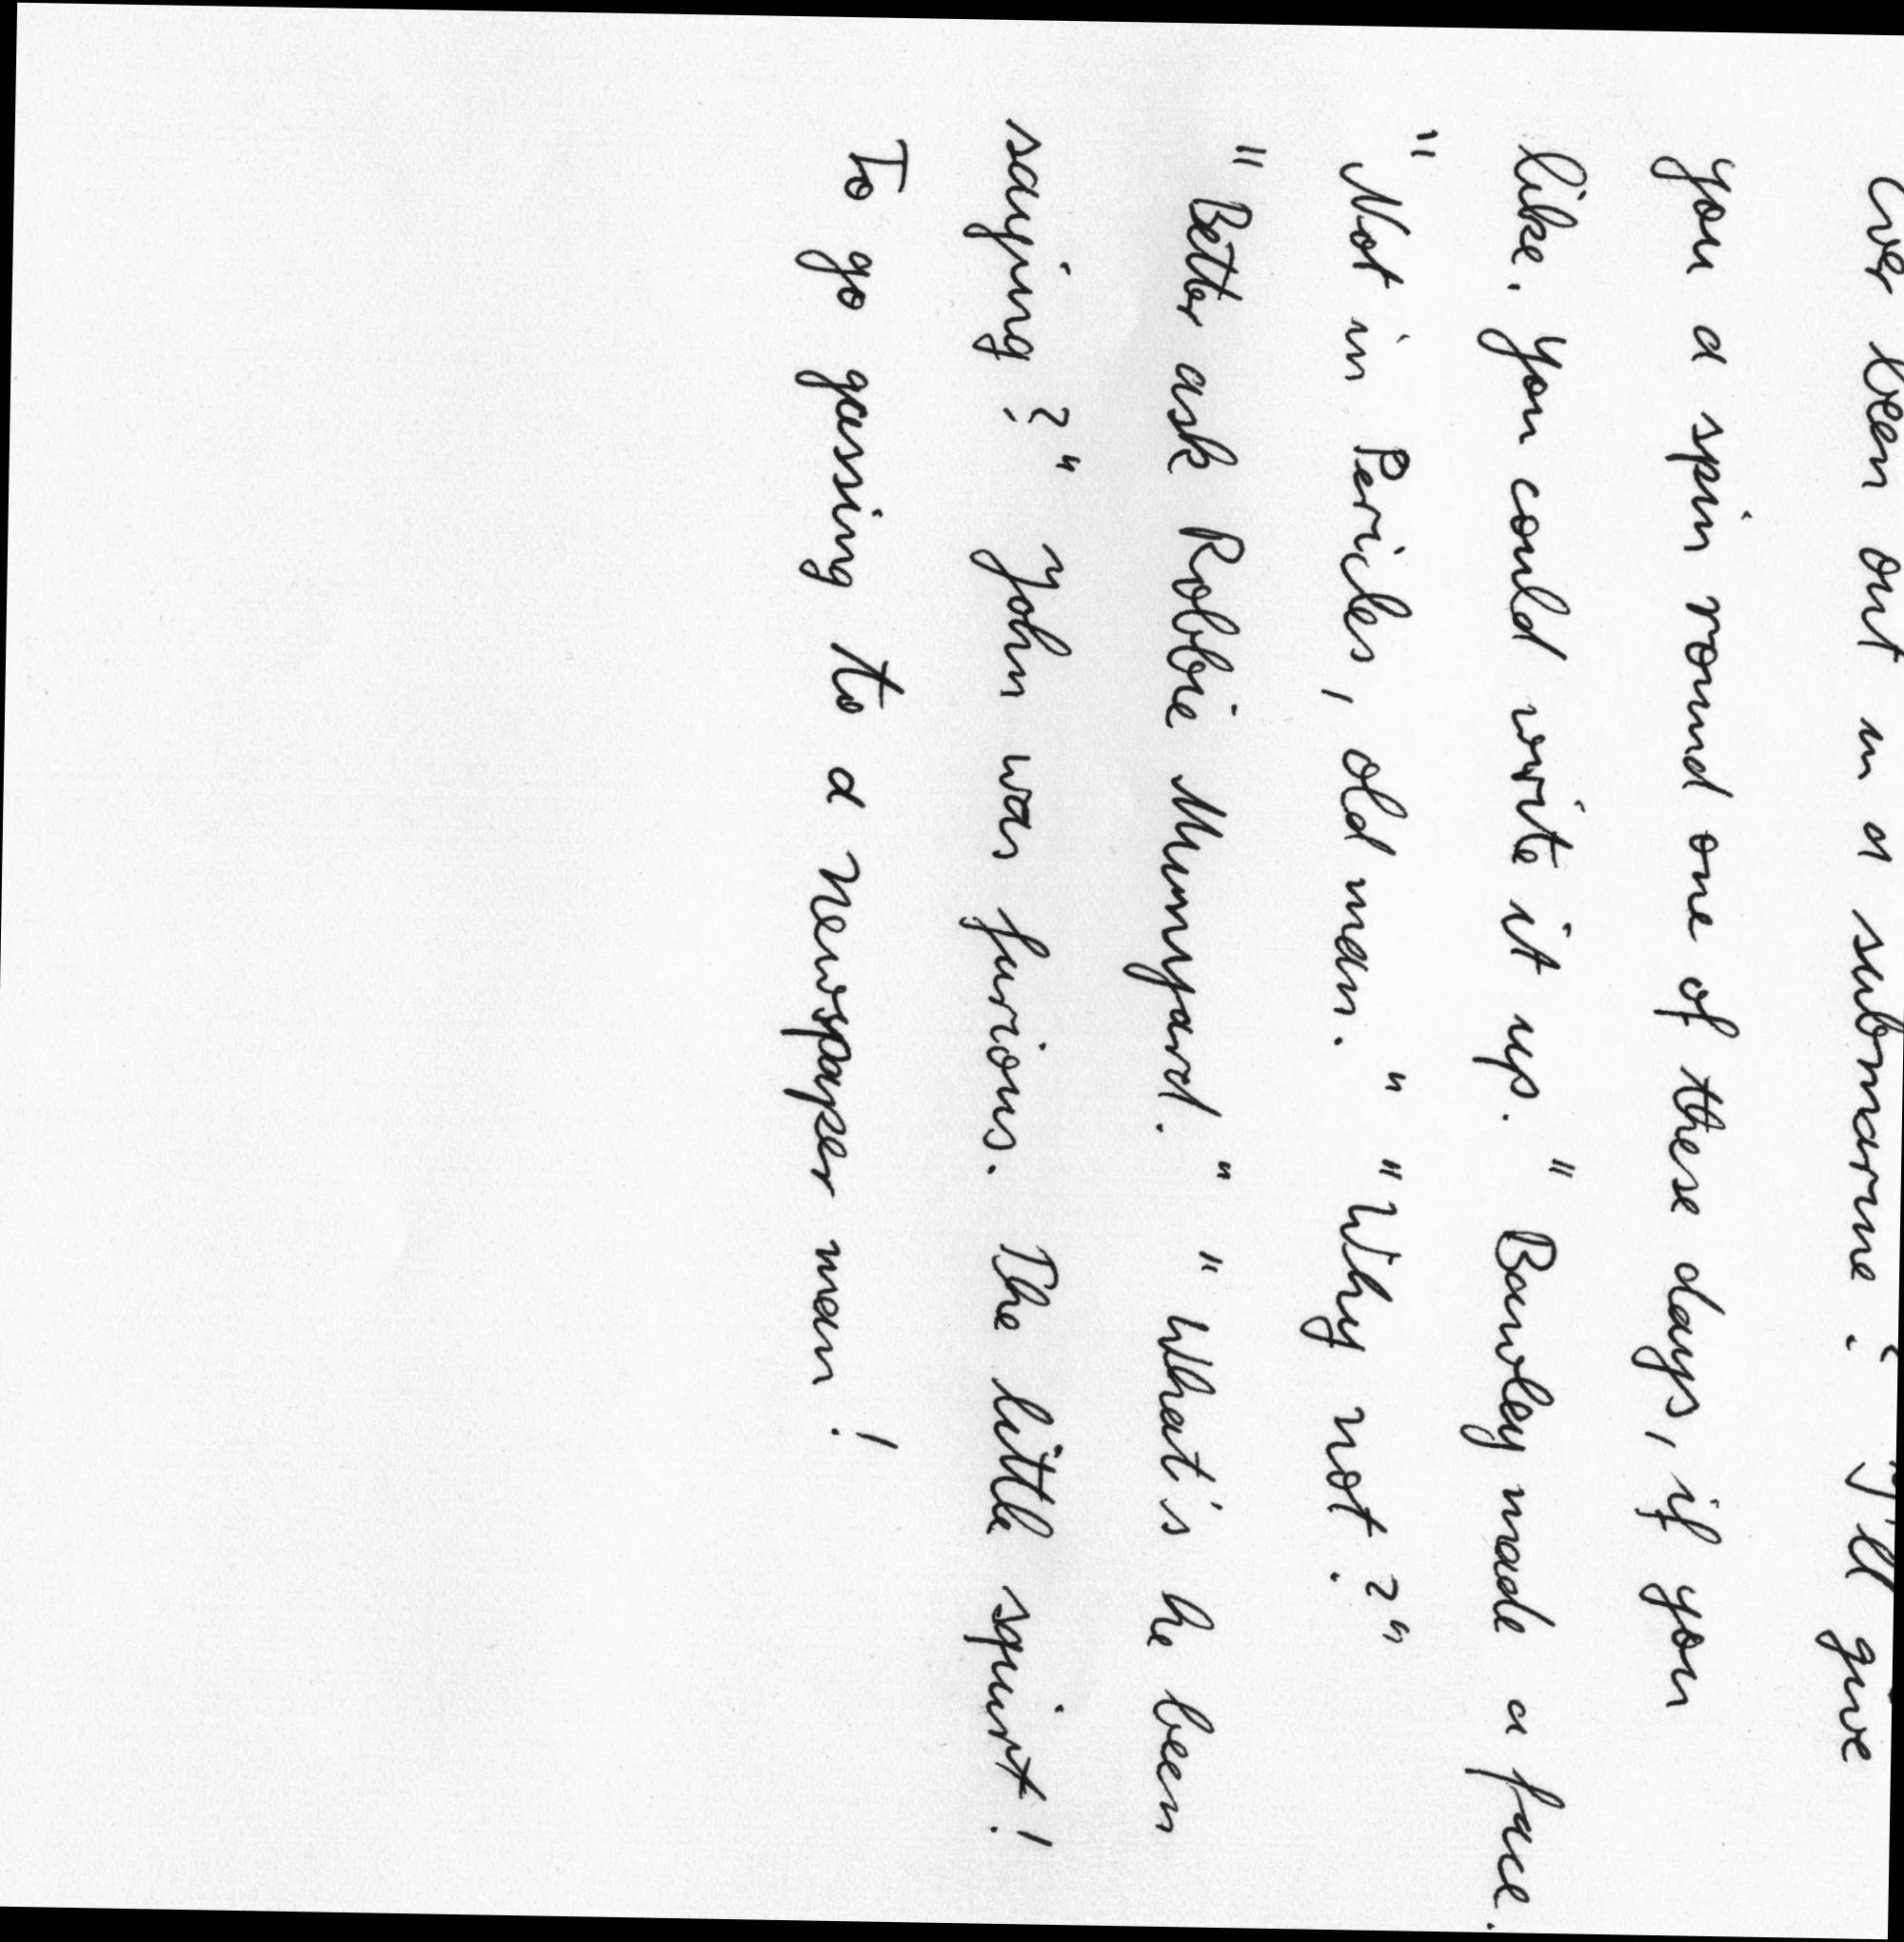 ever been out in a submarine? I'll give
you a spin round one of these days, if you
like. You could write it up." Bawley made a face.
"Not in Pericles, old man." "Why not?"
"Better ask Robbie Munyard." "What's he been
saying?" John was furious. The little squirt!
To go gassing to a newspaper man!